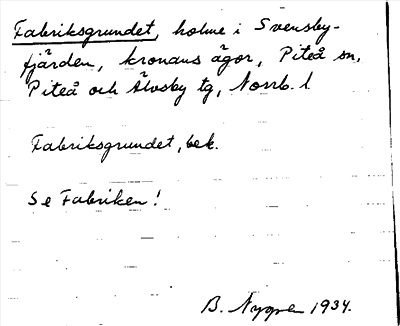 Fabriksgrundet, holme i Svensby-
fjärden, kronans ägor, Piteå sn,
Piteå och Älvsby tg, Norrb. l.
Fabriksgrundet, bek.
Se Fabriken!
B. Nygren 1934.